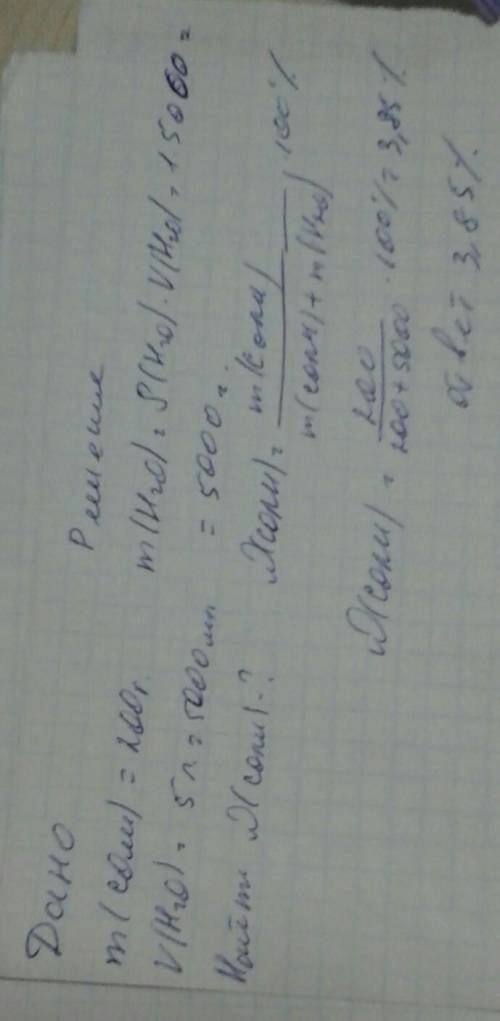 Дано
m(соли) = 200г.
V(H2O) = 5л = 5000мл
Найти ω(соли)-?
Решение
m(H2O) = ρ(H2O)·V(H2O) = 1·5000 =
= 5000г.
ω(соли) = m(соли) / m(соли) + m(H2O) · 100%
ω(соли) = 200 / 200 + 5000 · 100% = 3,85%
ответ 3,85%.